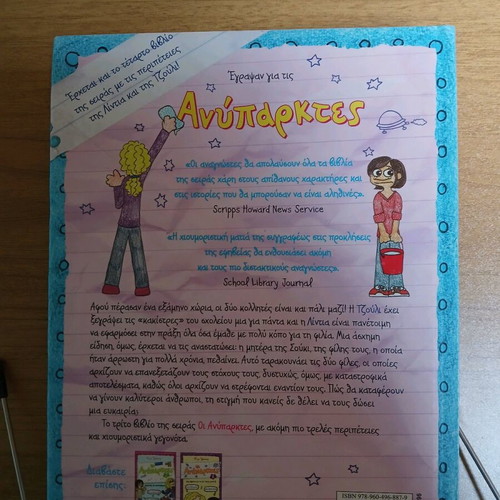 Έρχεται και το τέταρτο βιβλίο
της σειράς με τις περιπέτειες
της Λίντια και της Τζούλι!
Έγραψαν για τις
Ανύπαρκτες
«Οι αναγνώστες θα απολαύσουν όλα τα βιβλία
της σειράς χάρη στους απίθανους χαρακτήρες και
στις ιστορίες που θα μπορούσαν να είναι αληθινές».
Scripps Howard News Service
«Η χιουμοριστική ματιά της συγγραφέως στις προκλήσεις
της εφηβείας θα ενθουσιάσει ακόμη
και τους πιο διστακτικούς αναγνώστες».
School Library Journal
Αφού πέρασαν ένα εξάμηνο χώρια, οι δύο κολλητές είναι και πάλι μαζί! Η Τζούλι έχει
ξεγράψει τις «κακίστρες» του σχολείου μια για πάντα και η Λίντια είναι πανέτοιμη
να εφαρμόσει στην πράξη όλα όσα έμαθε με πολύ κόπο για τη φιλία. Μια άσχημη
είδηση, όμως, έρχεται να τις αναστατώσει: η μητέρα της Σούκι, της φίλης τους, η οποία
ήταν άρρωστη για πολλά χρόνια, πεθαίνει. Αυτό ταρακουνάει τις δύο φίλες, οι οποίες
αρχίζουν να επανεξετάζουν τους στόχους τους, δυστυχώς, όμως, με καταστροφικά
αποτελέσματα, καθώς όλοι αρχίζουν να στρέφονται εναντίον τους. Πώς θα καταφέρουν
να γίνουν καλύτεροι άνθρωποι, τη στιγμή που κανείς δε θέλει να τους δώσει
μια ευκαιρία;
Το τρίτο βιβλίο της σειράς Οι Ανύπαρκτες, με ακόμη πιο τρελές περιπέτειες
και χιουμοριστικά γεγονότα.
Διαβάστε
επίσης:
ISBN 978-960-496-887-9